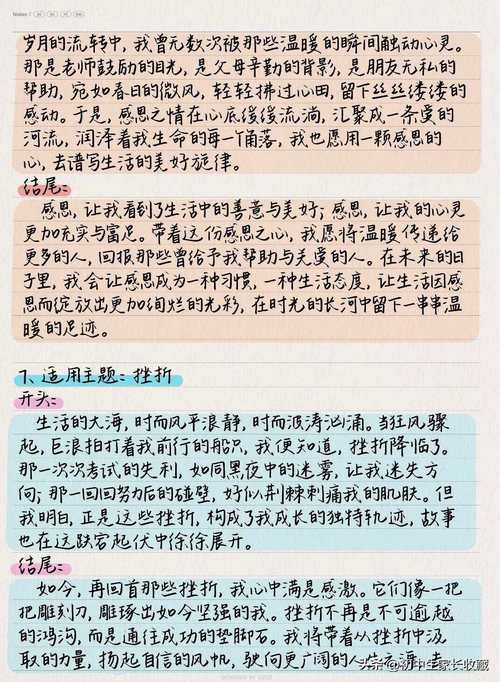 岁月的流转中，我曾无数次被那些温暖的瞬间触动心灵。
那是老师鼓励的目光，是父母辛勤的背影，是朋友无私的
帮助，宛如春日的微风，轻轻拂过心田，留下丝丝缕缕的
感动。于是，感恩之情在心底缓缓流淌，汇聚成一条爱的
河流，润泽着我生命的每一个角落，我也愿用一颗感恩的
心，去谱写生活的美好旋律。
结尾：
感恩，让我看到了生活中的善意与美好；感恩，让我的心灵
更加充实与富足。带着这份感恩之心，我愿将温暖传递给
更多的人，回报那些曾给予我帮助与关爱的人。在未来的日
子里，我会让感恩成为一种习惯，一种生活态度，让生活因感
恩而绽放出更加绚烂的光彩，在时光的长河中留下一串串温
暖的足迹。
7、适用主题：挫折
开头：
生活的大海，时而风平浪静，时而波涛汹涌。当狂风骤
起，巨浪拍打着我前行的船只，我便知道，挫折降临了。
那一次次考试的失利，如同黑夜中的迷雾，让我迷失方
向；那一回回努力后的碰壁，好似荆棘刺痛我的肌肤。但
我明白，正是这些挫折，构成了我成长的独特轨迹，故事
也在这跌宕起伏中徐徐展开。
结尾：
如今，再回首那些挫折，我心中满是感激。它们像一把
把雕刻刀，雕琢出如今坚强的我。挫折不再是不可逾越
的鸿沟，而是通往成功的垫脚石。我将带着从挫折中汲
取的力量，扬起自信的风帆，驶向更广阔的人生之海，去
头条 @初中生家长收藏